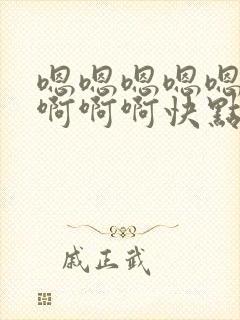 嗯嗯嗯嗯嗯
啊啊啊快點
戚正武